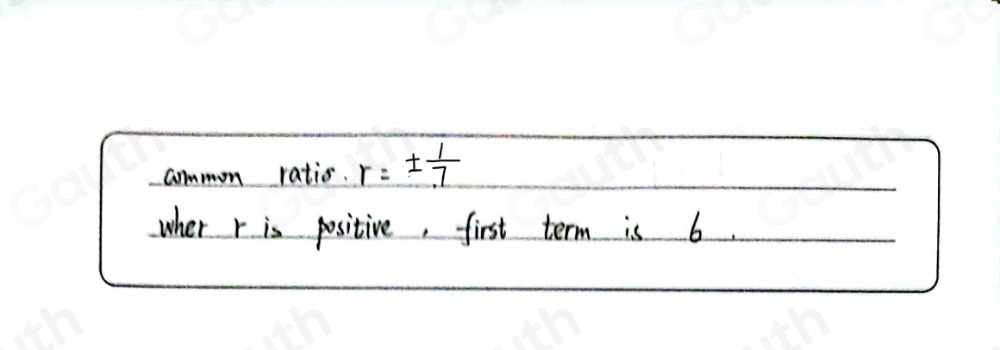 common ratio. r = ± 1/7
wher r is positive, first term is 6.